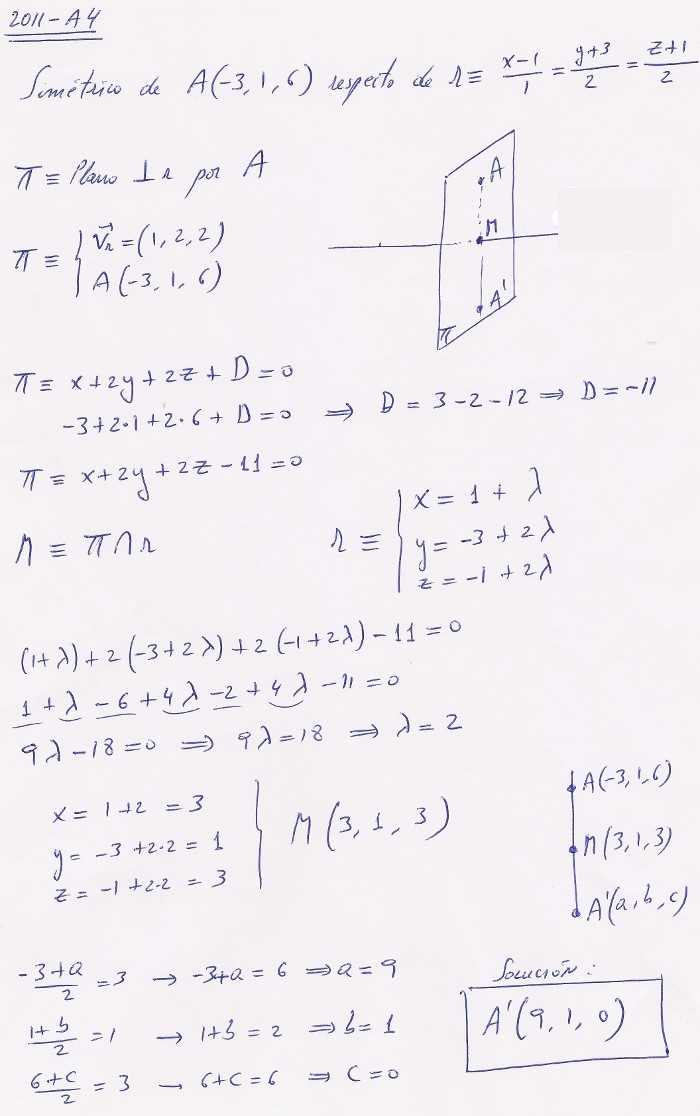 2011-A4
Simétrico de A(-3,1,6) respecto de r≡ (x-1)/1 = (y+3)/2 = (z+1)/2
π ≡ Plano ⊥ r por A
π ≡ { v⃗r = (1,2,2)
A(-3,1,6)
A
M
A'
π
π ≡ x+2y+2z+D=0
-3+2·1+2·6+D=0 ⇒ D = 3-2-12 ⇒ D=-11
π ≡ x+2y+2z-11=0
M ≡ π∩r
r ≡ { x = 1 + λ
y = -3 + 2λ
z = -1 + 2λ
(1+λ)+2(-3+2λ)+2(-1+2λ)-11=0
1+λ-6+4λ-2+4λ-11=0
9λ-18=0 ⇒ 9λ=18 ⇒ λ=2
x = 1+2 = 3
y = -3+2·2 = 1
z = -1+2·2 = 3
} M(3,1,3)
A(-3,1,6)
M(3,1,3)
A'(a,b,c)
(-3+a)/2 = 3 → -3+a = 6 ⇒ a=9
(1+b)/2 = 1 → 1+b = 2 ⇒ b=1
(6+c)/2 = 3 → 6+c=6 ⇒ c=0
Solución:
A'(9,1,0)